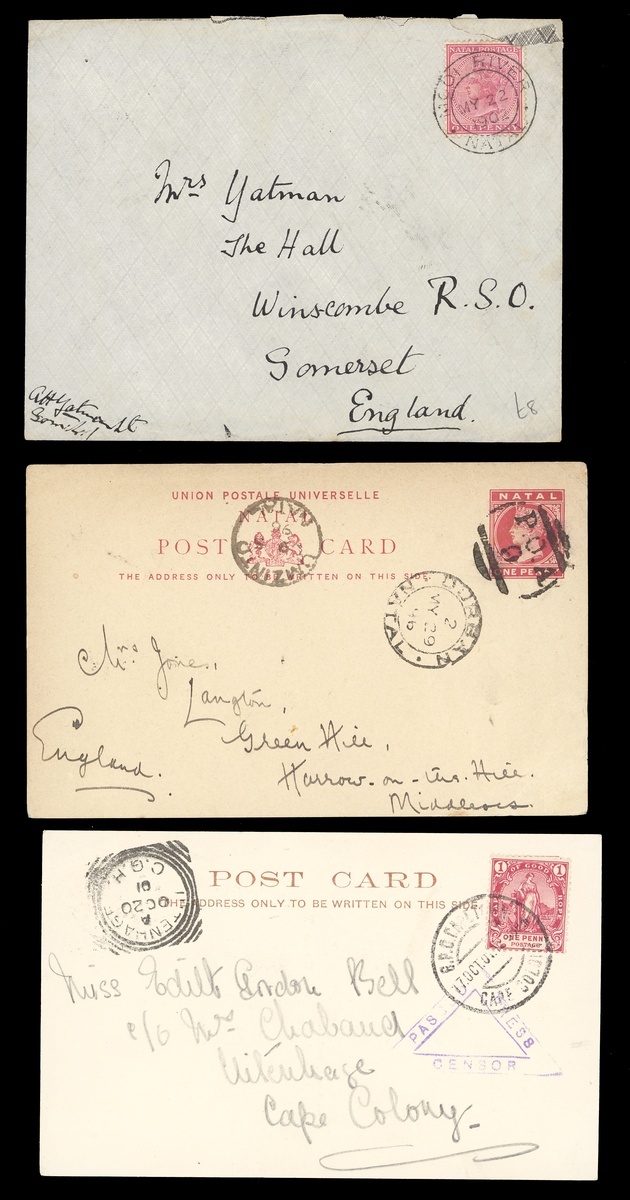 NATAL POSTAGE
ONE PENNY
MOOI RIVER
MY 22
1902
NATAL
Mrs Yatman
The Hall
Winscombe R.S.O.
Somerset
England.
£8
UNION POSTALE UNIVERSELLE
NATAL
POST CARD
THE ADDRESS ONLY TO BE WRITTEN ON THIS SIDE.
NATAL
ONE PENNY
P.O.A
9
UMZINTO
NATAL
DURBAN
2
MY 29
96
NATAL
Mrs Jones,
Langton,
Green Hill,
Harrow-on-the-Hill.
Middlesex.
England.
POST CARD
THE ADDRESS ONLY TO BE WRITTEN ON THIS SIDE.
UITENHAGE
A
OC 20
01
C.G.H.
1 1
OF GOOD HOPE
ONE PENNY
POSTAGE
17 OCT 01
CAPE COLONY
PASSED PRESS
CENSOR
Miss Edith Gordon Bell
c/o Mrs Chabaud
Uitenhage
Cape Colony